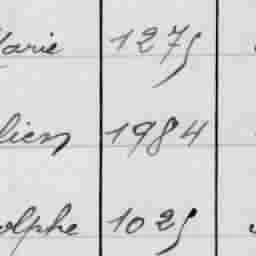 Marie 1275
lien 1984
olphe 1025